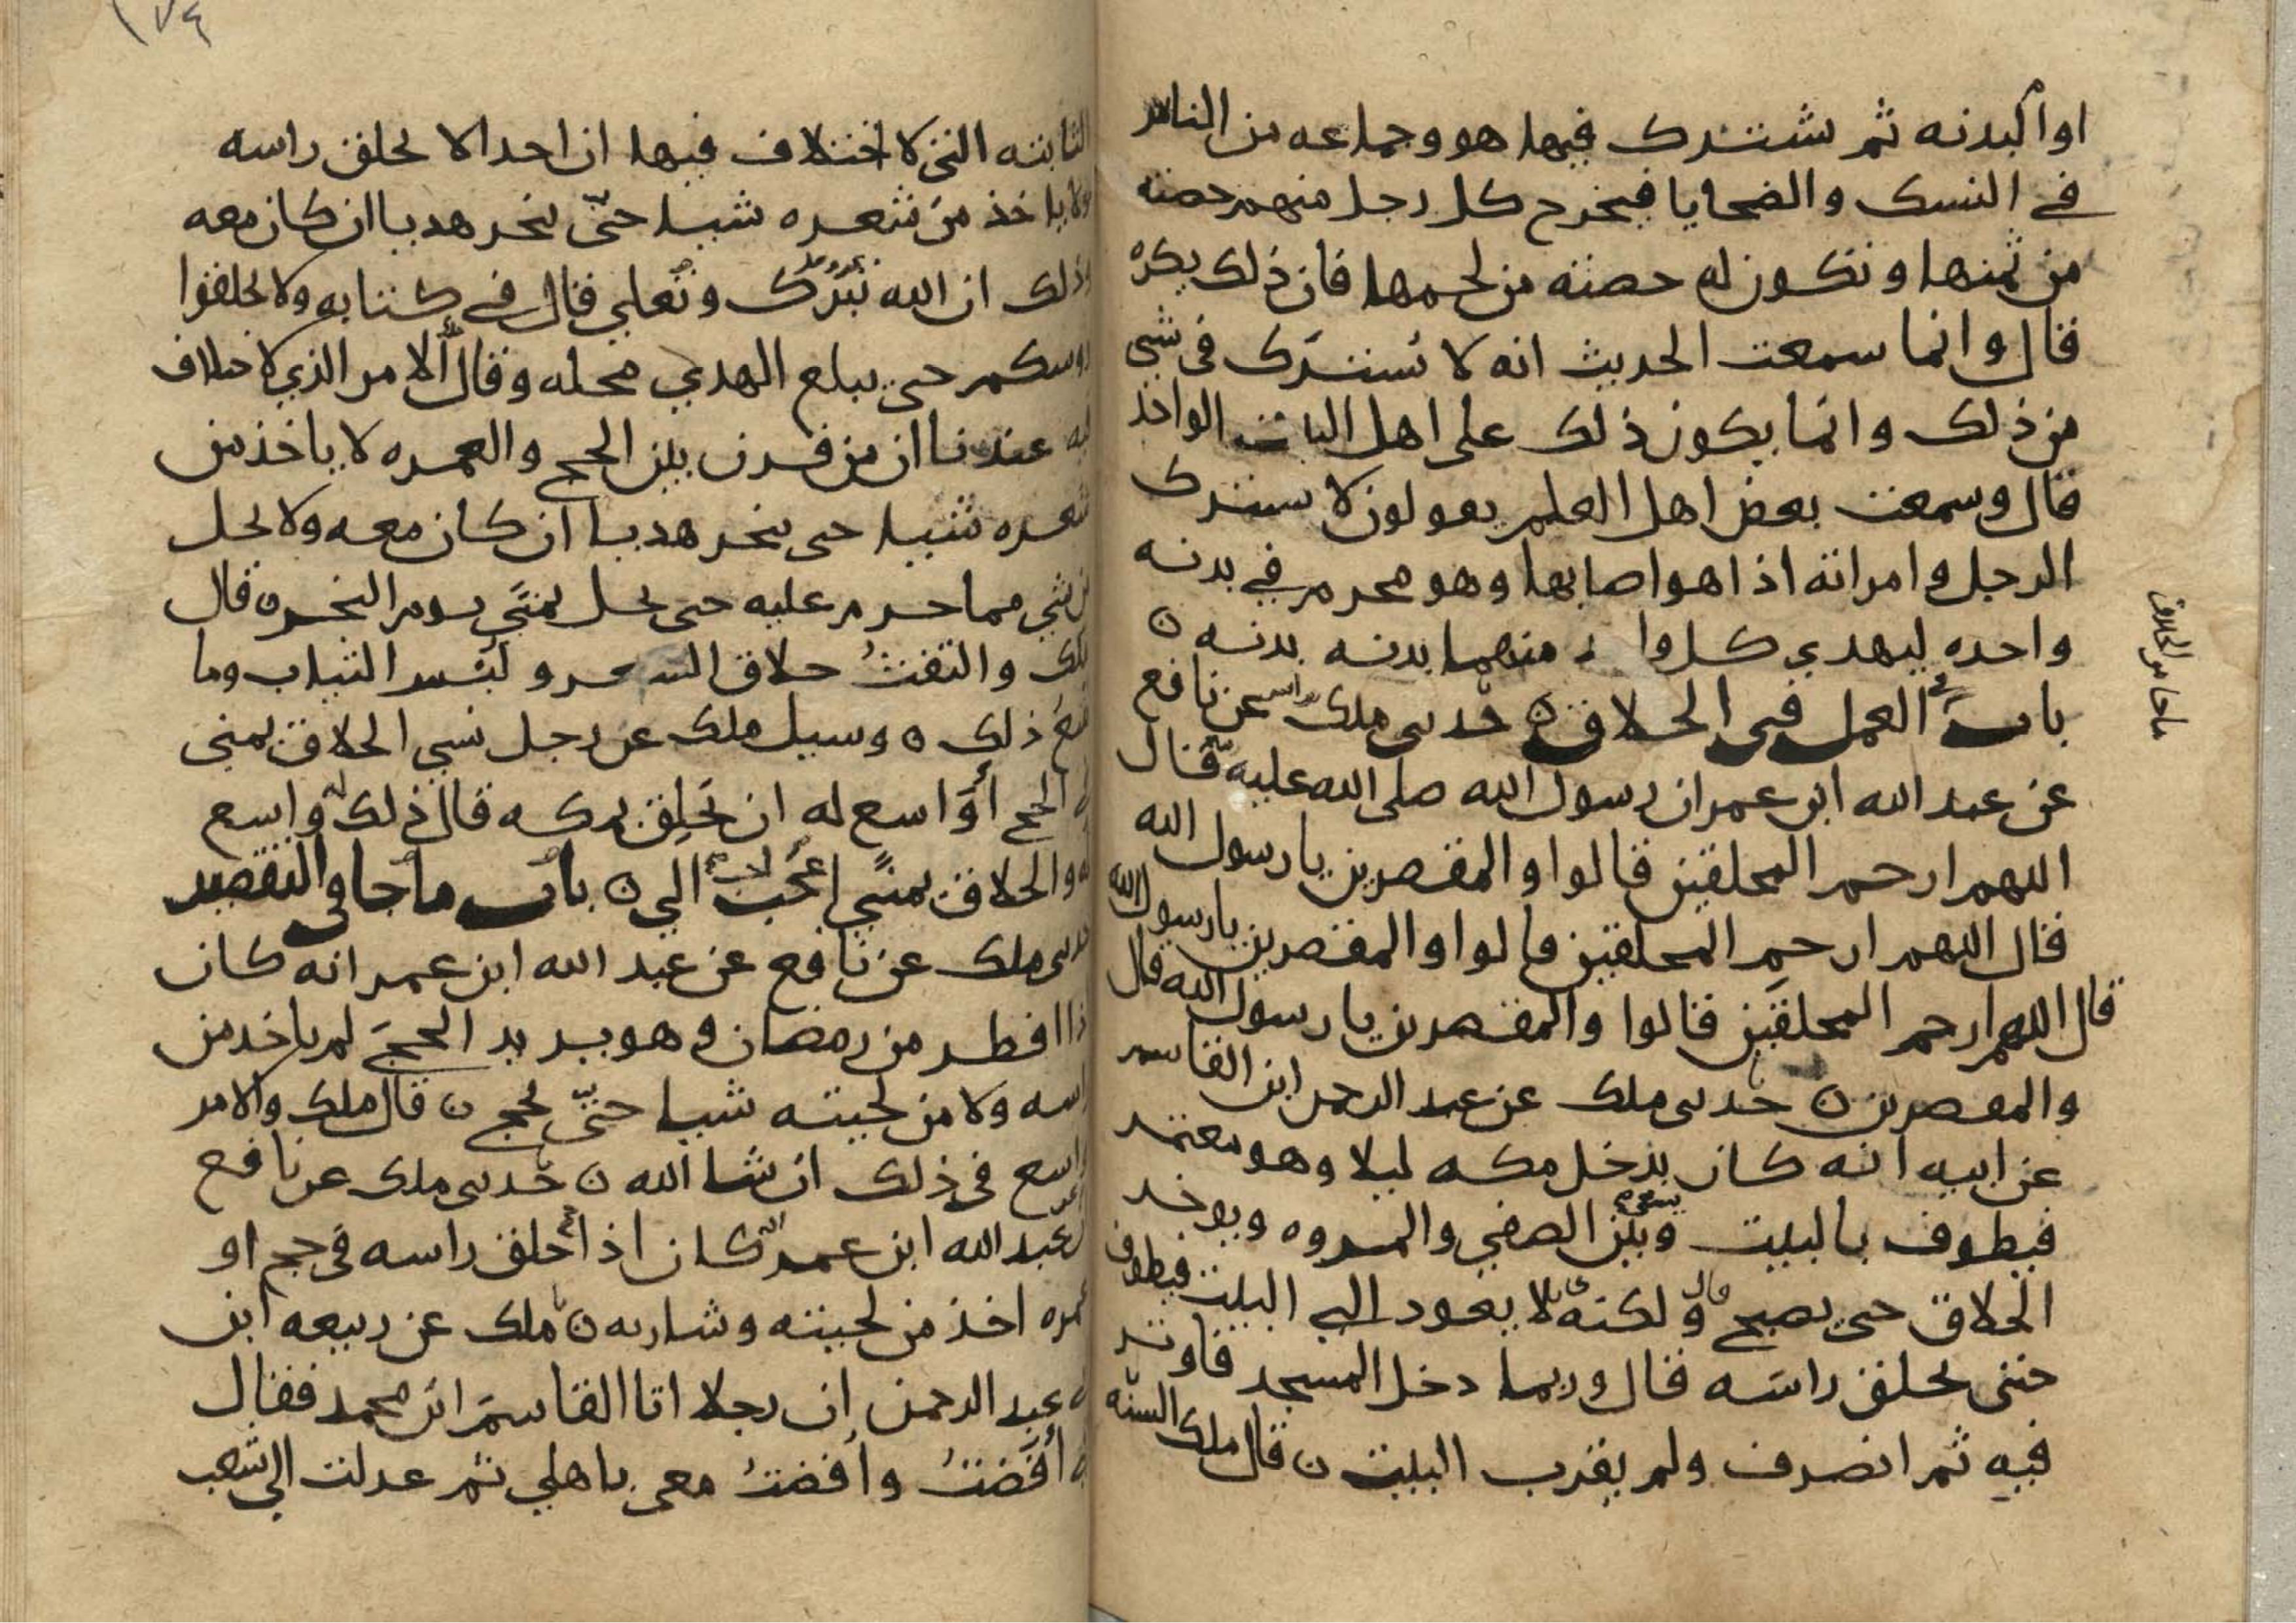 او البدنه ثم يشترك فيها هو وجماعه من الناس
في النسك والضحايا فيخرج كل رجل منهم حصته
من ثمنها وتكون له حصته من لحمها فان ذلك يكره
قال وانما سمعت الحديث انه لا يُشترَك في شي
من ذلك وانما يكون ذلك على اهل البيت الواحد
قال وسمعت بعض اهل العلم يقولون لا يشترك
الرجل وامراته اذا هو اصابها وهو محرم في بدنه
واحده ليهدي كل واحد منهما بدنه بدنه ن
باب العمل في الحلاق ن حدثني ملك عن نافع
عن عبد الله ابن عمر ان رسول الله صلى الله عليه قال
اللهم ارحم المحلقين قالوا والمقصرين يا رسول الله
قال اللهم ارحم المحلقين قالوا والمقصرين يا رسول الله
قال اللهم ارحم المحلقين قالوا والمقصرين يا رسول الله قال
والمقصرين ن حدثني ملك عن عبد الرحمن ابن القاسم
عن ابيه انه كان يدخل مكه ليلا وهو معتمر
فيطوف بالبيت وبين الصفي والمروه ويوخر
الحلاق حتى يصبح قال ولكنه لا يعود الي البيت فيطوف
حتى يحلق راسه قال وربما دخل المسجد فاوتر
فيه ثم انصرف ولم يقرب البيت ن قال ملك السنه
ما جا في الحلاق
١٧٤
الثابته التي لا اختلاف فيها ان احدا لا يحلق راسه
ولا ياخذ من شعره شيا حتّى ينحر هديا ان كان معه
وذلك ان الله تبرك وتعلي قال في كتابه ولا تحلقوا
روسكم حتى يبلغ الهدي محله وقال الامر الذي لا اختلاف
فيه عندنا ان من قرن بين الحج والعمره لا ياخذ من
شعره شيا حتى ينحر هديا ان كان معه ولا يحل
من شي مما حرم عليه حتى يحل بمنًي يوم النحر ن قال
ملك والتفثُ حلاق الشعر ولبس الثياب وما
يتبع ذلك ن وسيل ملك عن رجل نسي الحلاق بمنى
في الحج أوَاسع له ان يَحلِق بمكه قال ذلك واسع
له والحلاق بمنًي اعجب الي ن باب ما جا في التقصير
حدثني ملك عن نافع عن عبد الله ابن عمر انه كان
اذا افطر من رمضان وهو يريد الحج لم ياخذ من
راسه ولا من لحيته شيا حتّى يحج ن قال ملك والامر
واسع في ذلك ان شا الله ن حدثني ملك عن نافع
ان عبد الله ابن عمر كان اذا حلق راسه في حج او
عمره اخذ من لحيته وشاربه ن ملك عن ربيعه ابن
ابي عبد الرحمن ان رجلا اتا القاسم ابن محمد فقال
له أفَضتُ وأفضتُ معي باهلي ثم عدلت الي شعب